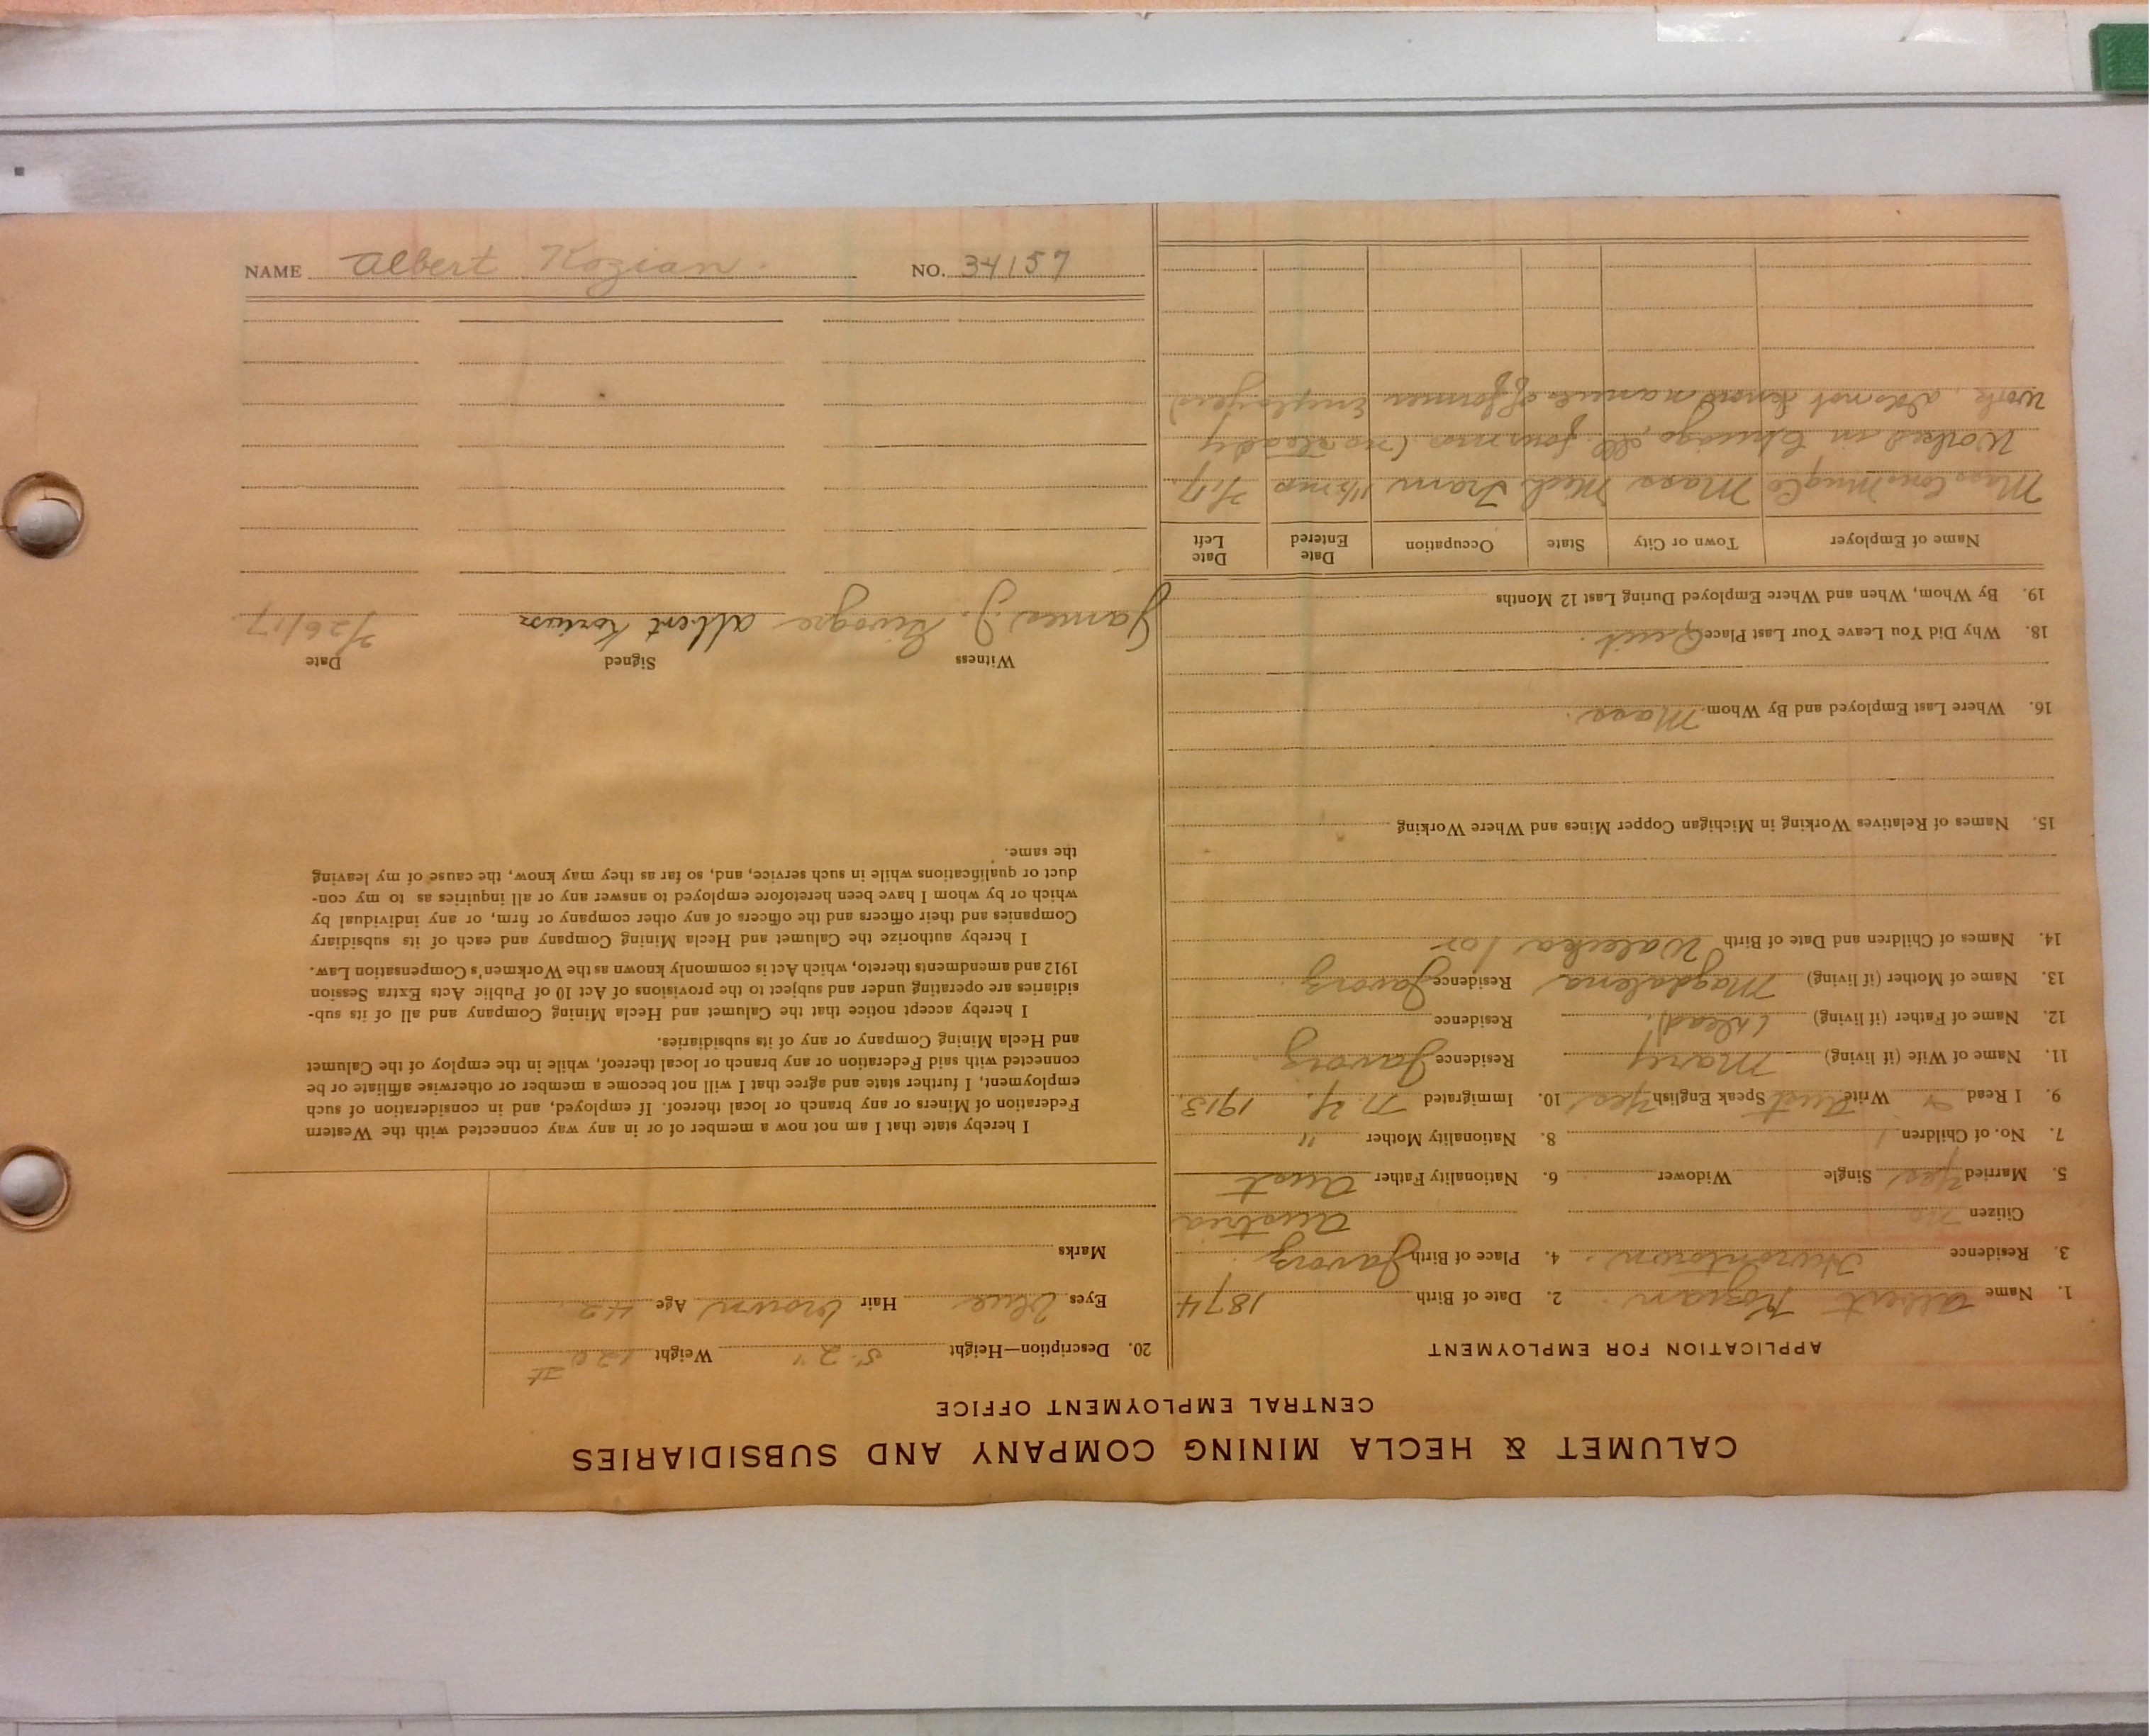 CALUMET & HECLA MINING COMPANY AND SUBSIDIARIES
CENTRAL EMPLOYMENT OFFICE
APPLICATION FOR EMPLOYMENT
1. Name Albert Kozian 2. Date of Birth 1874
3. Residence Hurontown. 4. Place of Birth Javorz
Citizen no Austria
5. Married Yes Single Widower 6. Nationality Father Aust
7. No. of Children 1 8. Nationality Mother "
9. I Read & Write Aust Speak English Yes 10. Immigrated N.Y. 1913
11. Name of Wife (if living) Mary Residence Javorz
12. Name of Father (if living) (dead) Residence
13. Name of Mother (if living) Magdalena Residence Javorz
14. Names of Children and Date of Birth
15. Names of Relatives Working in Michigan Copper Mines and Where Working
16. Where Last Employed and By Whom Mass.
18. Why Did You Leave Your Last Place Quit.
19. By Whom, When and Where Employed During Last 12 Months
Name of Employer Town or City State Occupation Date Entered Date Left
Mass Cons Mng Co Mass Mich Tram 1½ mo 2/17.
Worked in Chicago, Ill four mo (no steady
work, do not know names of former employers)
20. Description—Height 5' 2" Weight 120 #
Eyes blue Hair brown Age 42
Marks
I hereby state that I am not now a member of or in any way connected with the Western
Federation of Miners or any branch or local thereof. If employed, and in consideration of such
employment, I further state and agree that I will not become a member or otherwise affiliate or be
connected with said Federation or any branch or local thereof, while in the employ of the Calumet
and Hecla Mining Company or any of its subsidiaries.
I hereby accept notice that the Calumet and Hecla Mining Company and all of its sub-
sidiaries are operating under and subject to the provisions of Act 10 of Public Acts Extra Session
1912 and amendments thereto, which Act is commonly known as the Workmen's Compensation Law.
I hereby authorize the Calumet and Hecla Mining Company and each of its subsidiary
Companies and their officers and the officers of any other company or firm, or any individual by
which or by whom I have been heretofore employed to answer any or all inquiries as to my con-
duct or qualifications while in such service, and, so far as they may know, the cause of my leaving
the same.
Witness Signed Date
James J. Albert Kozian 2/26/17.
NAME Albert Kozian. NO. 34157